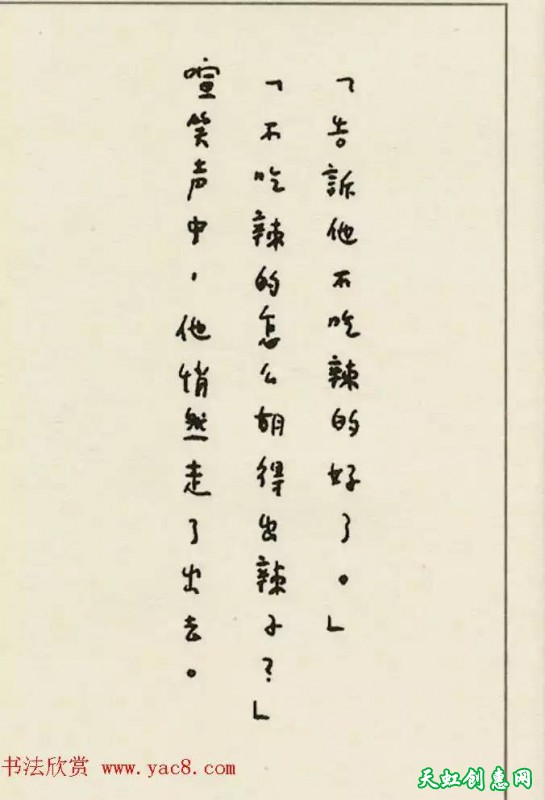 「告訴他不吃辣的好了。」
「不吃辣的怎么胡得出辣子?」
喧笑声中，他悄然走了出去。
书法欣赏 www.yac8.com
天虹创意网